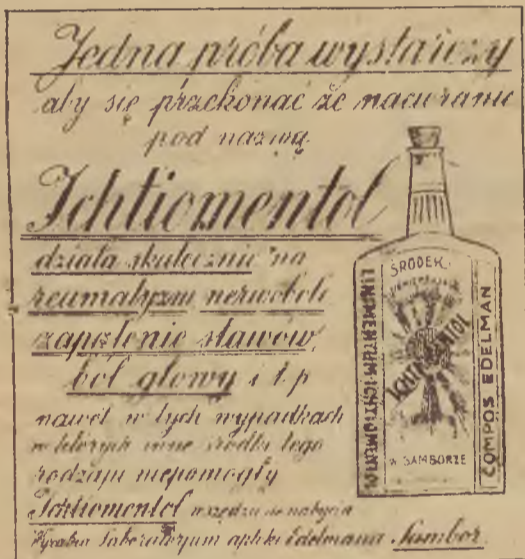 Jedna próba wystarczy
aby się przekonać że nacieranie
pod nazwą
Ichtiomentol
działa skutecznie na
reumatyzm nerwobole
zapalenie stawów,
ból głowy i t p
nawet w tych wypadkach
w których inne środki tego
rodzaju niepomogły
Ichtiomentol wszędzie do nabycia
Wyrabia Laboratoryum apteki Edelmana Sambor.
ŚRODEK
LINIMENTUM ICHTIOMENTOL
ICHTIOMENTOL
COMPOS EDELMAN
W SAMBORZE